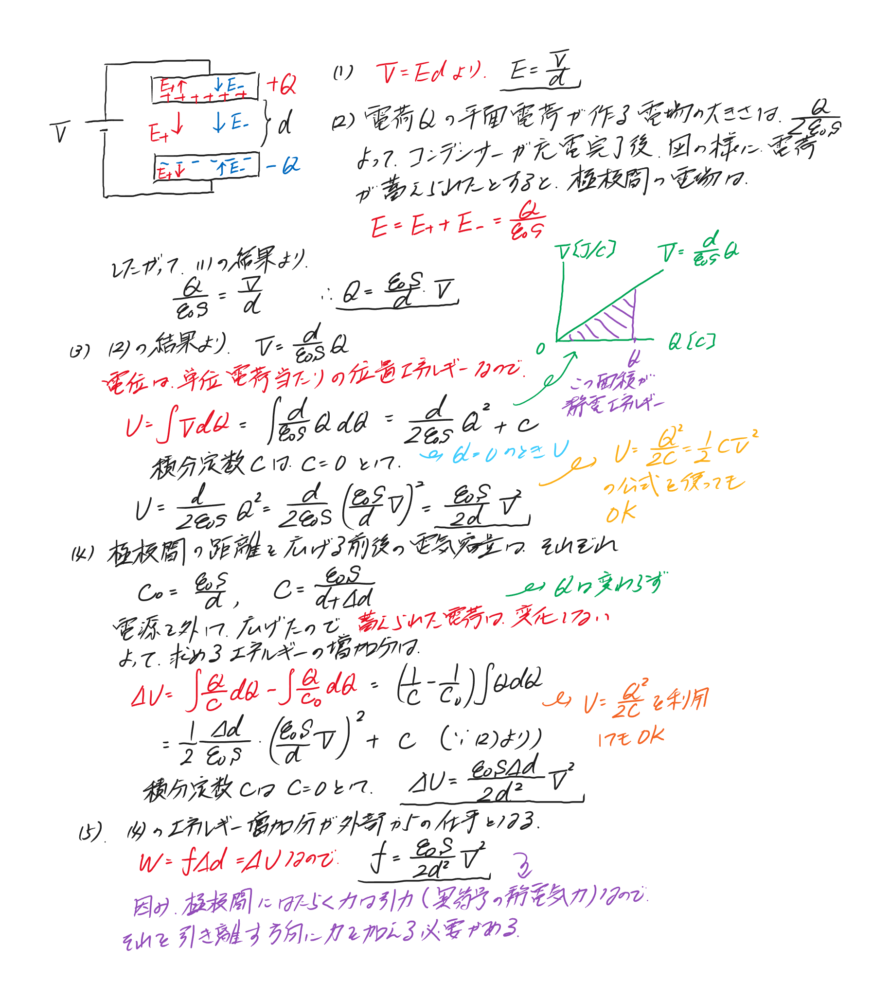 V
E+↑ ↓E- +Q
+ + + + + + +
E+↓ ↓E- d
E+↓ ↑E- -Q
(1) V=Edより. E=V/d
(2) 電荷Qの平面電荷が作る電場の大きさは. Q/2ε0S
よって. コンデンサーが充電完了後. 図の様に. 電荷
が蓄えられたとすると. 極板間の電場は.
E=E+ + E- = Q/ε0S
したがって. (1)の結果より.
Q/ε0S = V/d ∴ Q = ε0S/d V
V[J/C]
V=d/ε0S Q
0 Q Q[C]
この面積が
静電エネルギー
(3) (2)の結果より. V=d/ε0S Q
電位は. 単位電荷当たりの位置エネルギーなので.
U=∫VdQ = ∫d/ε0S Q dQ = d/2ε0S Q² + C
積分定数Cは. C=0として. Q=0のときU
U = d/2ε0S Q² = d/2ε0S (ε0S/d V)² = ε0S/2d V²
U=Q²/2C=1/2 CV²
の公式を使っても
OK
(4) 極板間の距離を広げる前後の電気容量は. それぞれ
C0 = ε0S/d , C = ε0S/d+Δd
Qは変わらず
電源を外して. 広げたので. 蓄えられた電荷は. 変化しない
よって. 求めるエネルギーの増加分は.
ΔU = ∫Q/C dQ - ∫Q/C0 dQ = (1/C - 1/C0)∫QdQ
U=Q²/2Cを利用
してもOK
= 1/2 Δd/ε0S・(ε0S/d V)² + C (∵(2)より)
積分定数Cは C=0として. ΔU = ε0SΔd/2d² V²
(5). (4)のエネルギー増加分が外部からの仕事となる.
W=fΔd=ΔUなので. f = ε0S/2d² V²
因み. 極板間にはたらく力は引力(異符号の静電気力)なので.
それを引き離す方向に力を加える必要がある.